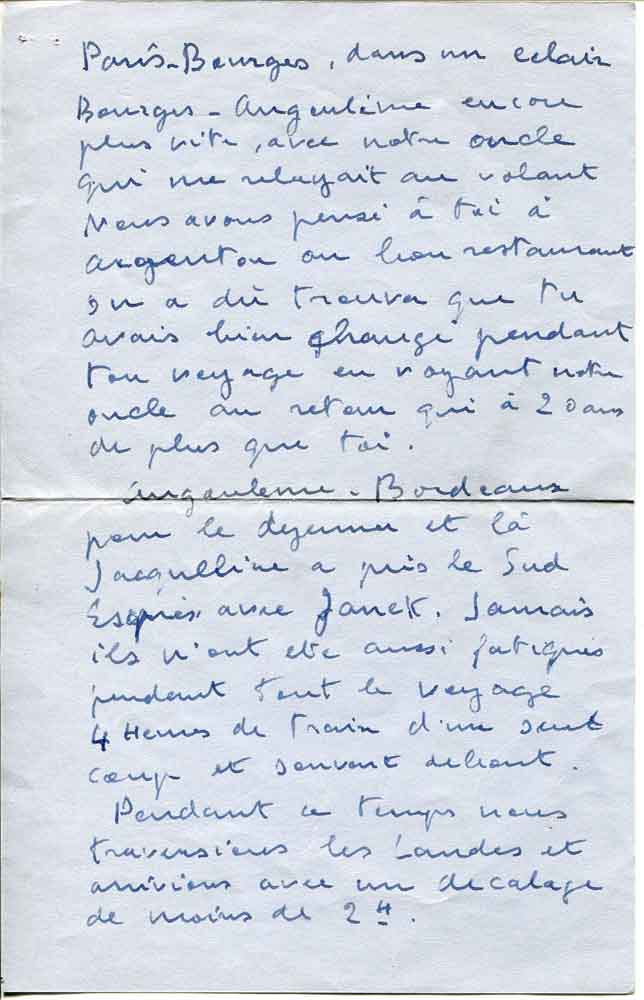 Paris-Bourges, dans un eclair
Bourges - Angoulême encore
plus vite, avec notre oncle
qui me relayait au volant
Nous avons pensé à toi à
Argenton ou bon restaurant
on a dû trouver que tu
avais bien changé pendant
ton voyage en voyant notre
oncle au retour qui à 20 ans
de plus que toi.
Angouleme - Bordeaux
pour le dejeuner et là
Jacquelline a pris le Sud
Express avec Janek. Jamais
ils n'ont été aussi fatigués
pendant tout le voyage
4 Heures de train d'un seul
coup et souvent debout.
Pendant ce temps nous
traversions les Landes et
arrivions avec un decalage
de moins de 2 H.